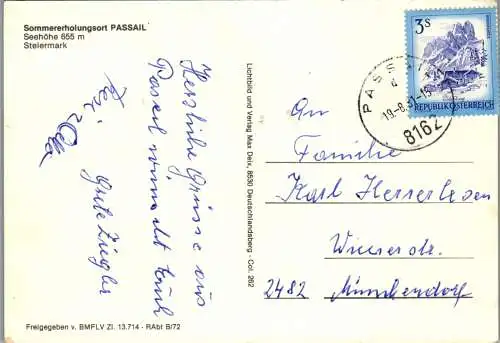 Sommererholungsort PASSAIL
Seehöhe 655 m
Steiermark
Herzliche Grüsse aus
Passail wünscht Euch
Grete Ziegler
Freigegeben v. BMFLV Zl. 13.714 - RAbt B/72
Lichtbild und Verlag Max Delx, 8530 Deutschlandsberg - Col. 262
3 S
REPUBLIK ÖSTERREICH
PASSAIL
19.-8.81-15
8162
An
Familie
Karl
Wienerstr.
2482 Münchendorf